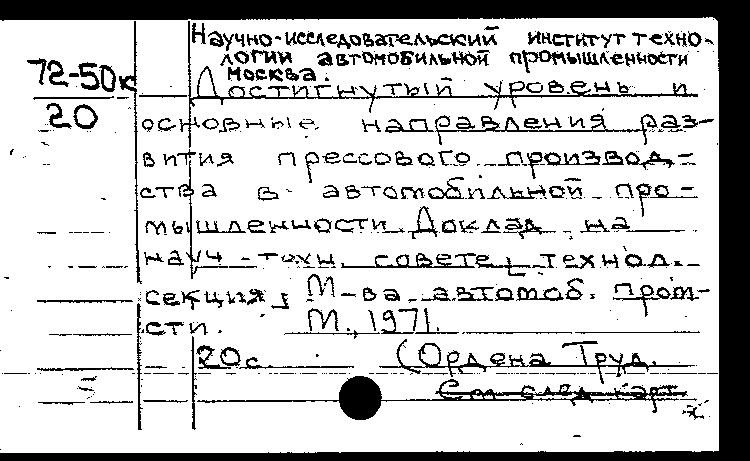 Научно-исследовательский институт техно-
логии автомобильной промышленности
Москва.
72-50к
20
Достигнутый уровень и
основные направления раз-
вития прессового производ-
ства в автомобильной про-
мышленности. Доклад на
науч-техн. совете [ технол.
секция ] М-ва автомоб. пром-
сти. М., 1971.
20 с. (Ордена Труд.
См след карт
5